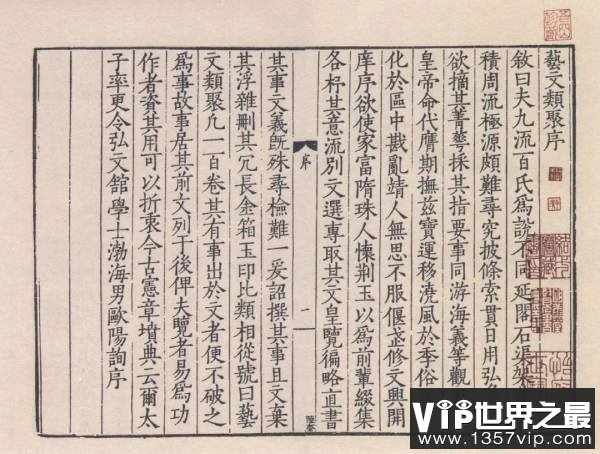 藝文類聚序
敘曰夫九流百氏爲說不同延閣石渠架
積周流極源頗難尋究披條索貫日用弘
欲摘其菁華採其指要事同游海義等觀
皇帝命代膺期撫茲寶運移澆風於季俗
化於區中戡亂靖人無思不服偃武修文興開
庠序欲使家富隋珠人懷荆玉以爲前輩綴集
各杼其意流別文選專取其文皇覽徧略直書
序
一
陸奎
其事文義旣殊尋檢難一爰詔撰其事且文棄
其浮雜刪其冗長金箱玉印比類相從號曰藝
文類聚凡一百卷其有事出於文者便不破之
爲事故事居其前文列于後俾夫覽者易爲功
作者資其用可以折衷今古憲章墳典云爾太
子率更令弘文館學士渤海男歐陽詢序
VIP世界之最
www.1357vip.com